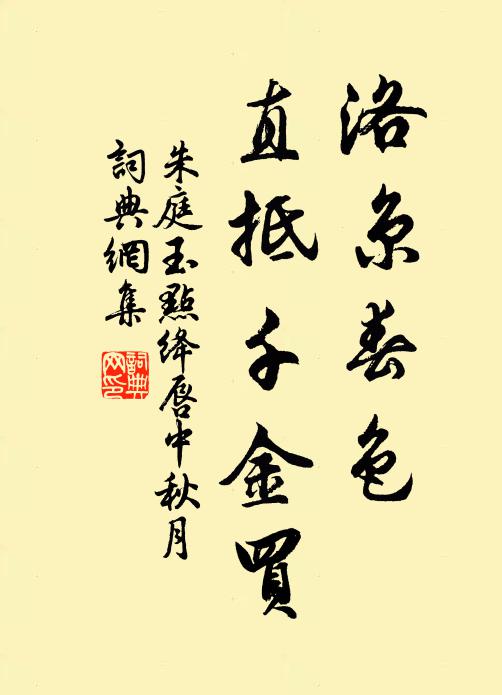 洛京春色
直抵千金買
朱庭玉點絳唇中秋月
詞典網集
詞典網印